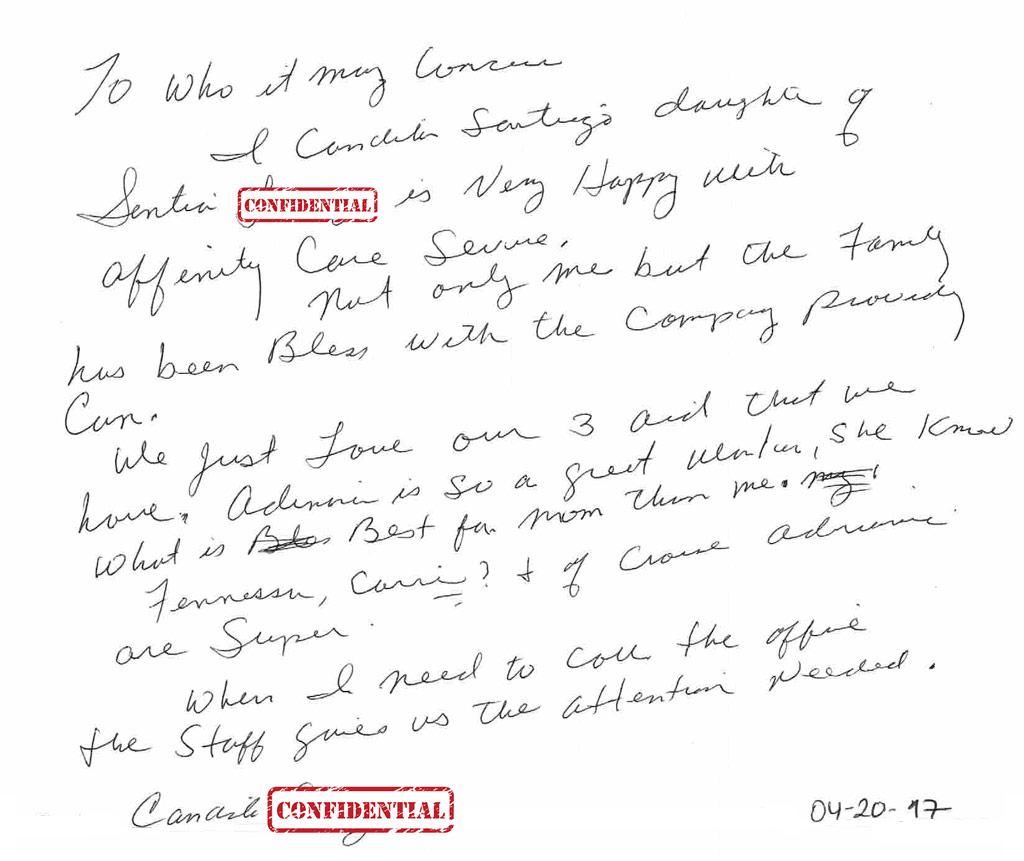 To Who it may Concern
I Candita Santiago daughter of
CONFIDENTIAL is Very Happy with
affinity Care Service.
Not only me but the Family
has been Bless with the Company providing
Care.
We just Love our 3 aid that we
have. is so a great worker, She Know
what is Best for mom than me.
Tennessa, Carri? + of Crouse Adrianne
are Super.
When I need to call the office
the Staff gives us the attention Needed.
CONFIDENTIAL 04-20-17